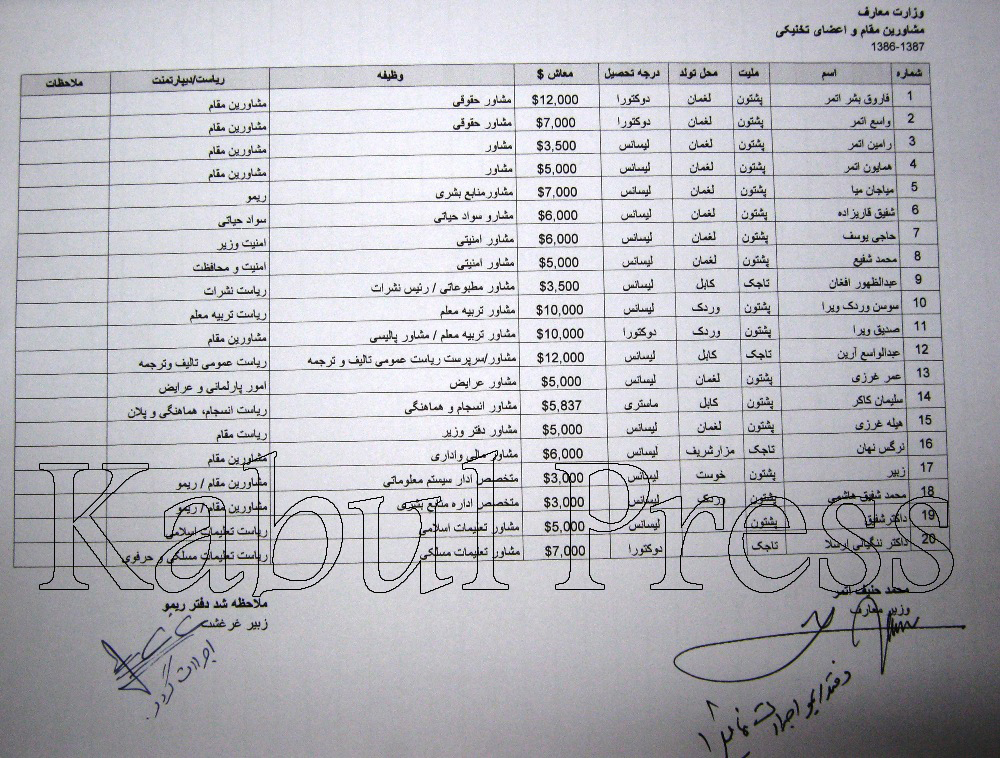 وزارت معارف
مشاورین مقام و اعضای تخنیکی
1386-1387
شماره اسم ملیت محل تولد درجه تحصیل معاش $ وظیفه ریاست/دیپارتمنت ملاحظات
1 فاروق بشر اتمر پشتون لغمان دوکتورا $12,000 مشاور حقوقی مشاورین مقام
2 واسع اتمر پشتون لغمان دوکتورا $7,000 مشاور حقوقی مشاورین مقام
3 رامین اتمر پشتون لغمان لیسانس $3,500 مشاور مشاورین مقام
4 همایون اتمر پشتون لغمان لیسانس $5,000 مشاور مشاورین مقام
5 میاجان میا پشتون لغمان لیسانس $7,000 مشاورمنابع بشری ریمو
6 شفیق قاریزاده پشتون لغمان لیسانس $6,000 مشارو سواد حیاتی سواد حیاتی
7 حاجی یوسف پشتون لغمان لیسانس $6,000 مشاور امنیتی امنیت وزیر
8 محمد شفیع پشتون لغمان لیسانس $5,000 مشاور امنیتی امنیت و محافظت
9 عبدالظهور افغان تاجک کابل لیسانس $3,500 مشاور مطبوعاتی / رئیس نشرات ریاست نشرات
10 سوسن وردک ویرا پشتون وردک لیسانس $10,000 مشاور تربیه معلم ریاست تربیه معلم
11 صدیق ویرا پشتون وردک دوکتورا $10,000 مشاور تربیه معلم / مشاور پالیسی مشاورین مقام
12 عبدالواسع آرین تاجک کابل لیسانس $12,000 مشاور/سرپرست ریاست عمومی تالیف و ترجمه ریاست عمومی تالیف وترجمه
13 عمر غرزی پشتون لغمان لیسانس $5,000 مشاور عرایض امور پارلمانی و عرایض
14 سلیمان کاکر پشتون کابل ماستری $5,837 مشاور انسجام و هماهنگی ریاست انسجام، هماهنگی و پلان
15 هیله غرزی پشتون لغمان لیسانس $5,000 مشاور دفتر وزیر ریاست مقام
16 نرگس نهان تاجک مزارشریف لیسانس $6,000 مشاور مالی واداری مشاورین مقام
17 زبیر پشتون خوست لیسانس $3,000 متخصص ادار سیستم معلوماتی مشاورین مقام / ریمو
18 محمد شفیق هاشمی پشتون وردک لیسانس $3,000 متخصص اداره منابع بشری مشاورین مقام / ریمو
19 داکترشفیق پشتون لیسانس $5,000 مشاور تعلیمات اسلامی ریاست تعلیمات اسلامی
20 داکتر ننگیالی ارسلا تاجک دوکتورا $7,000 مشاور تعلیمات مسلکی ریاست تعلیمات مسلکی و حرفوی
Kabul Press
محمد حنیف اتمر
وزیر معارف
ملاحظه شد دفتر ریمو
زبیر غرغشت
اجراات گردد.